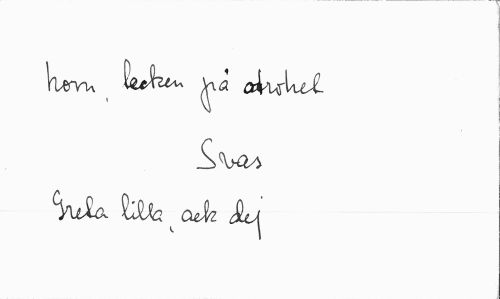 horn, tecken på otrohet
Svar
Greta lilla, ack dej